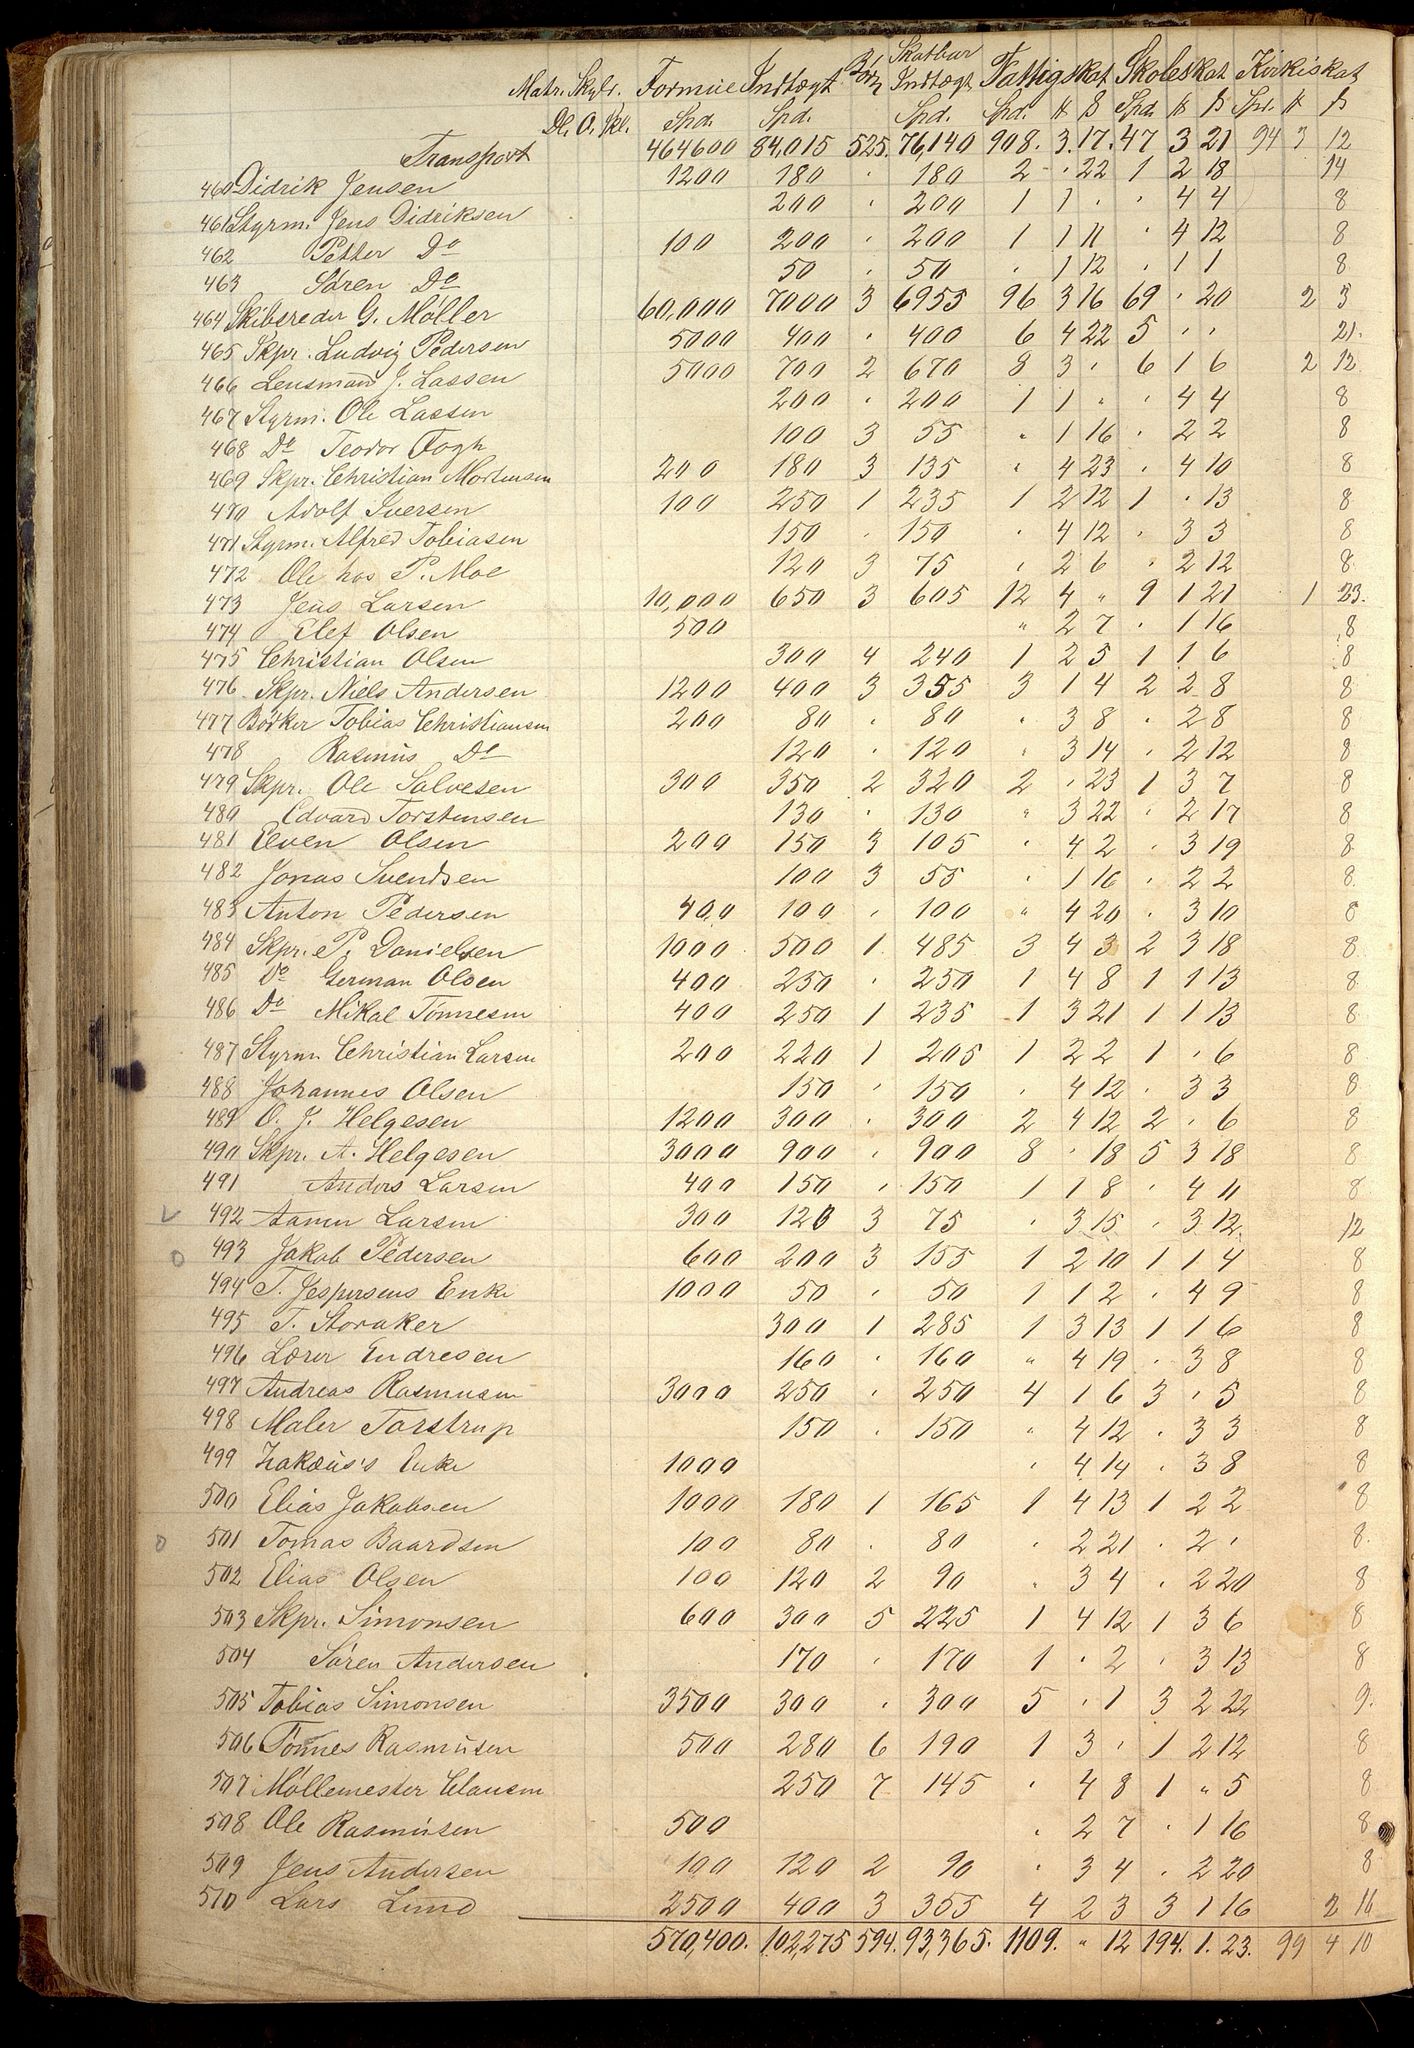 Matr. Skyld. Formue Indtægt Börn Skatbar Indtægt Fattigskat Skoleskat Kirkeskat
Dl. O. Skl. Spd. Spd. Spd. Spd. # ß Spd. # ß Spd. # ß
Transport 464600 84,015 525. 76,140 908. 3. 17. 47 3 21 94 3 12
460 Didrik Jensen 1200 180 . 180 2 . 22 1 2 18 14
461 Styrm. Jens Didriksen 200 . 200 1 1 . . 4 4 8
462 Petter Do 100 200 . 200 1 1 11 . 4 12 8
463 Søren Do 50 . 50 . 1 12 . 1 1 8
464 Skibsreder G. Møller 60,000 7000 3 6955 96 3 16 69 . 20 2 3
465 Skpr. Ludvig Pedersen 5000 400 . 400 6 4 22 5 . . 21.
466 Lensmand J. Lassen 5000 700 2 670 8 3 . 6 1 6 2 12
467 Styrm. Ole Lassen 200 . 200 1 1 " . 4 4 8
468 Do Teodor Fogh 100 3 55 " 1 16 . 2 2 8
469 Skpr. Christian Mortensen 200 180 3 135 " 4 23 . 4 10 8
470 Adolf Iversen 100 250 1 235 1 2 12 1 . 13 8
471 Styrm. Alfred Tobiasen 150 . 150 . 4 12 . 3 3 8
472 Ole hos P. Moe 120 3 75 . 2 6 . 2 12 8.
473 Jens Larsen 10,000 650 3 605 12 4 " 9 1 21 1 23.
474 Elef Olsen 500 " 2 7 . 1 16 8
475 Christian Olsen 300 4 240 1 2 5 1 1 6 8
476 Skpr. Niels Andersen 1200 400 3 355 3 1 4 2 2 8 8
477 Bödker Tobias Christiansen 200 80 . 80 . 3 8 . 2 8 8
478 Rasmus Do 120 . 120 " 3 14 . 2 12 8
479 Skpr. Ole Salvesen 300 350 2 320 2 . 23 1 3 7 8
480 Edvard Torstensen 130 . 130 " 3 22 . 2 17 8
481 Even Olsen 200 150 3 105 . 4 2 . 3 19 8
482 Jonas Svendsen 100 3 55 . 1 16 . 2 2 8.
483 Anton Pedersen 400 100 . 100 " 4 20 . 3 10 8
484 Skpr. P. Danielsen 1000 500 1 485 3 4 3 2 3 18 8
485 Do German Olsen 400 250 . 250 1 4 8 1 1 13 8
486 Do Mikal Tönnesen 400 250 1 235 1 3 21 1 1 13 8
487 Styrm Christian Larsen 200 220 1 205 1 2 2 1 . 6 8
488 Johannes Olsen 150 . 150 . 4 12 . 3 3 8
489 O. J. Helgesen 1200 300 . 300 2 4 12 2 . 6 8
490 Skpr. A. Helgesen 3000 900 . 900 8 . 18 5 3 18 8
491 Anders Larsen 400 150 . 150 1 1 8 . 4 11 8
492 Aanen Larsen 300 120 3 75 . 3 15 . 3 12 12
493 Jakob Pedersen 600 200 3 155 1 2 10 1 1 4 8
494 T. Jespersens Enke 1000 50 . 50 1 1 2 . 4 9 8
495 T. Storaker 300 1 285 1 3 13 1 1 6 8
496 Lærer Endresen 160 . 160 " 4 19 . 3 8 8
497 Andreas Rasmusen 3000 250 . 250 4 1 6 3 . 5 8
498 Maler Torstrup 150 . 150 " 4 12 . 3 3 8
499 Zakæus's Enke 1000 . 4 14 . 3 8 8
500 Elias Jakobsen 1000 180 1 165 1 4 13 1 2 2 8
501 Tomas Baardsen 100 80 . 80 . 2 21 . 2 . 8.
502 Elias Olsen 100 120 2 90 . 3 4 . 2 20 8
503 Skpr. Simonsen 600 300 5 225 1 4 12 1 3 6 8
504 Søren Andersen 170 . 170 1 . 2 . 3 13 8
505 Tobias Simonsen 3500 300 . 300 5 . 1 3 2 22 9.
506 Tönnes Rasmusen 500 280 6 190 1 3 . 1 2 12 8
507 Möllemester Clausen 250 7 145 . 4 8 1 " 5 8
508 Ole Rasmusen 500 . 2 7 . 1 16 8
509 Jens Andersen 100 120 2 90 . 3 4 . 2 20 8
510 Lars Lund 2500 400 3 355 4 2 3 3 1 16 2 16
570,400. 102,275 594. 93,365. 1109. " 12 194. 1. 23. 99 4 10